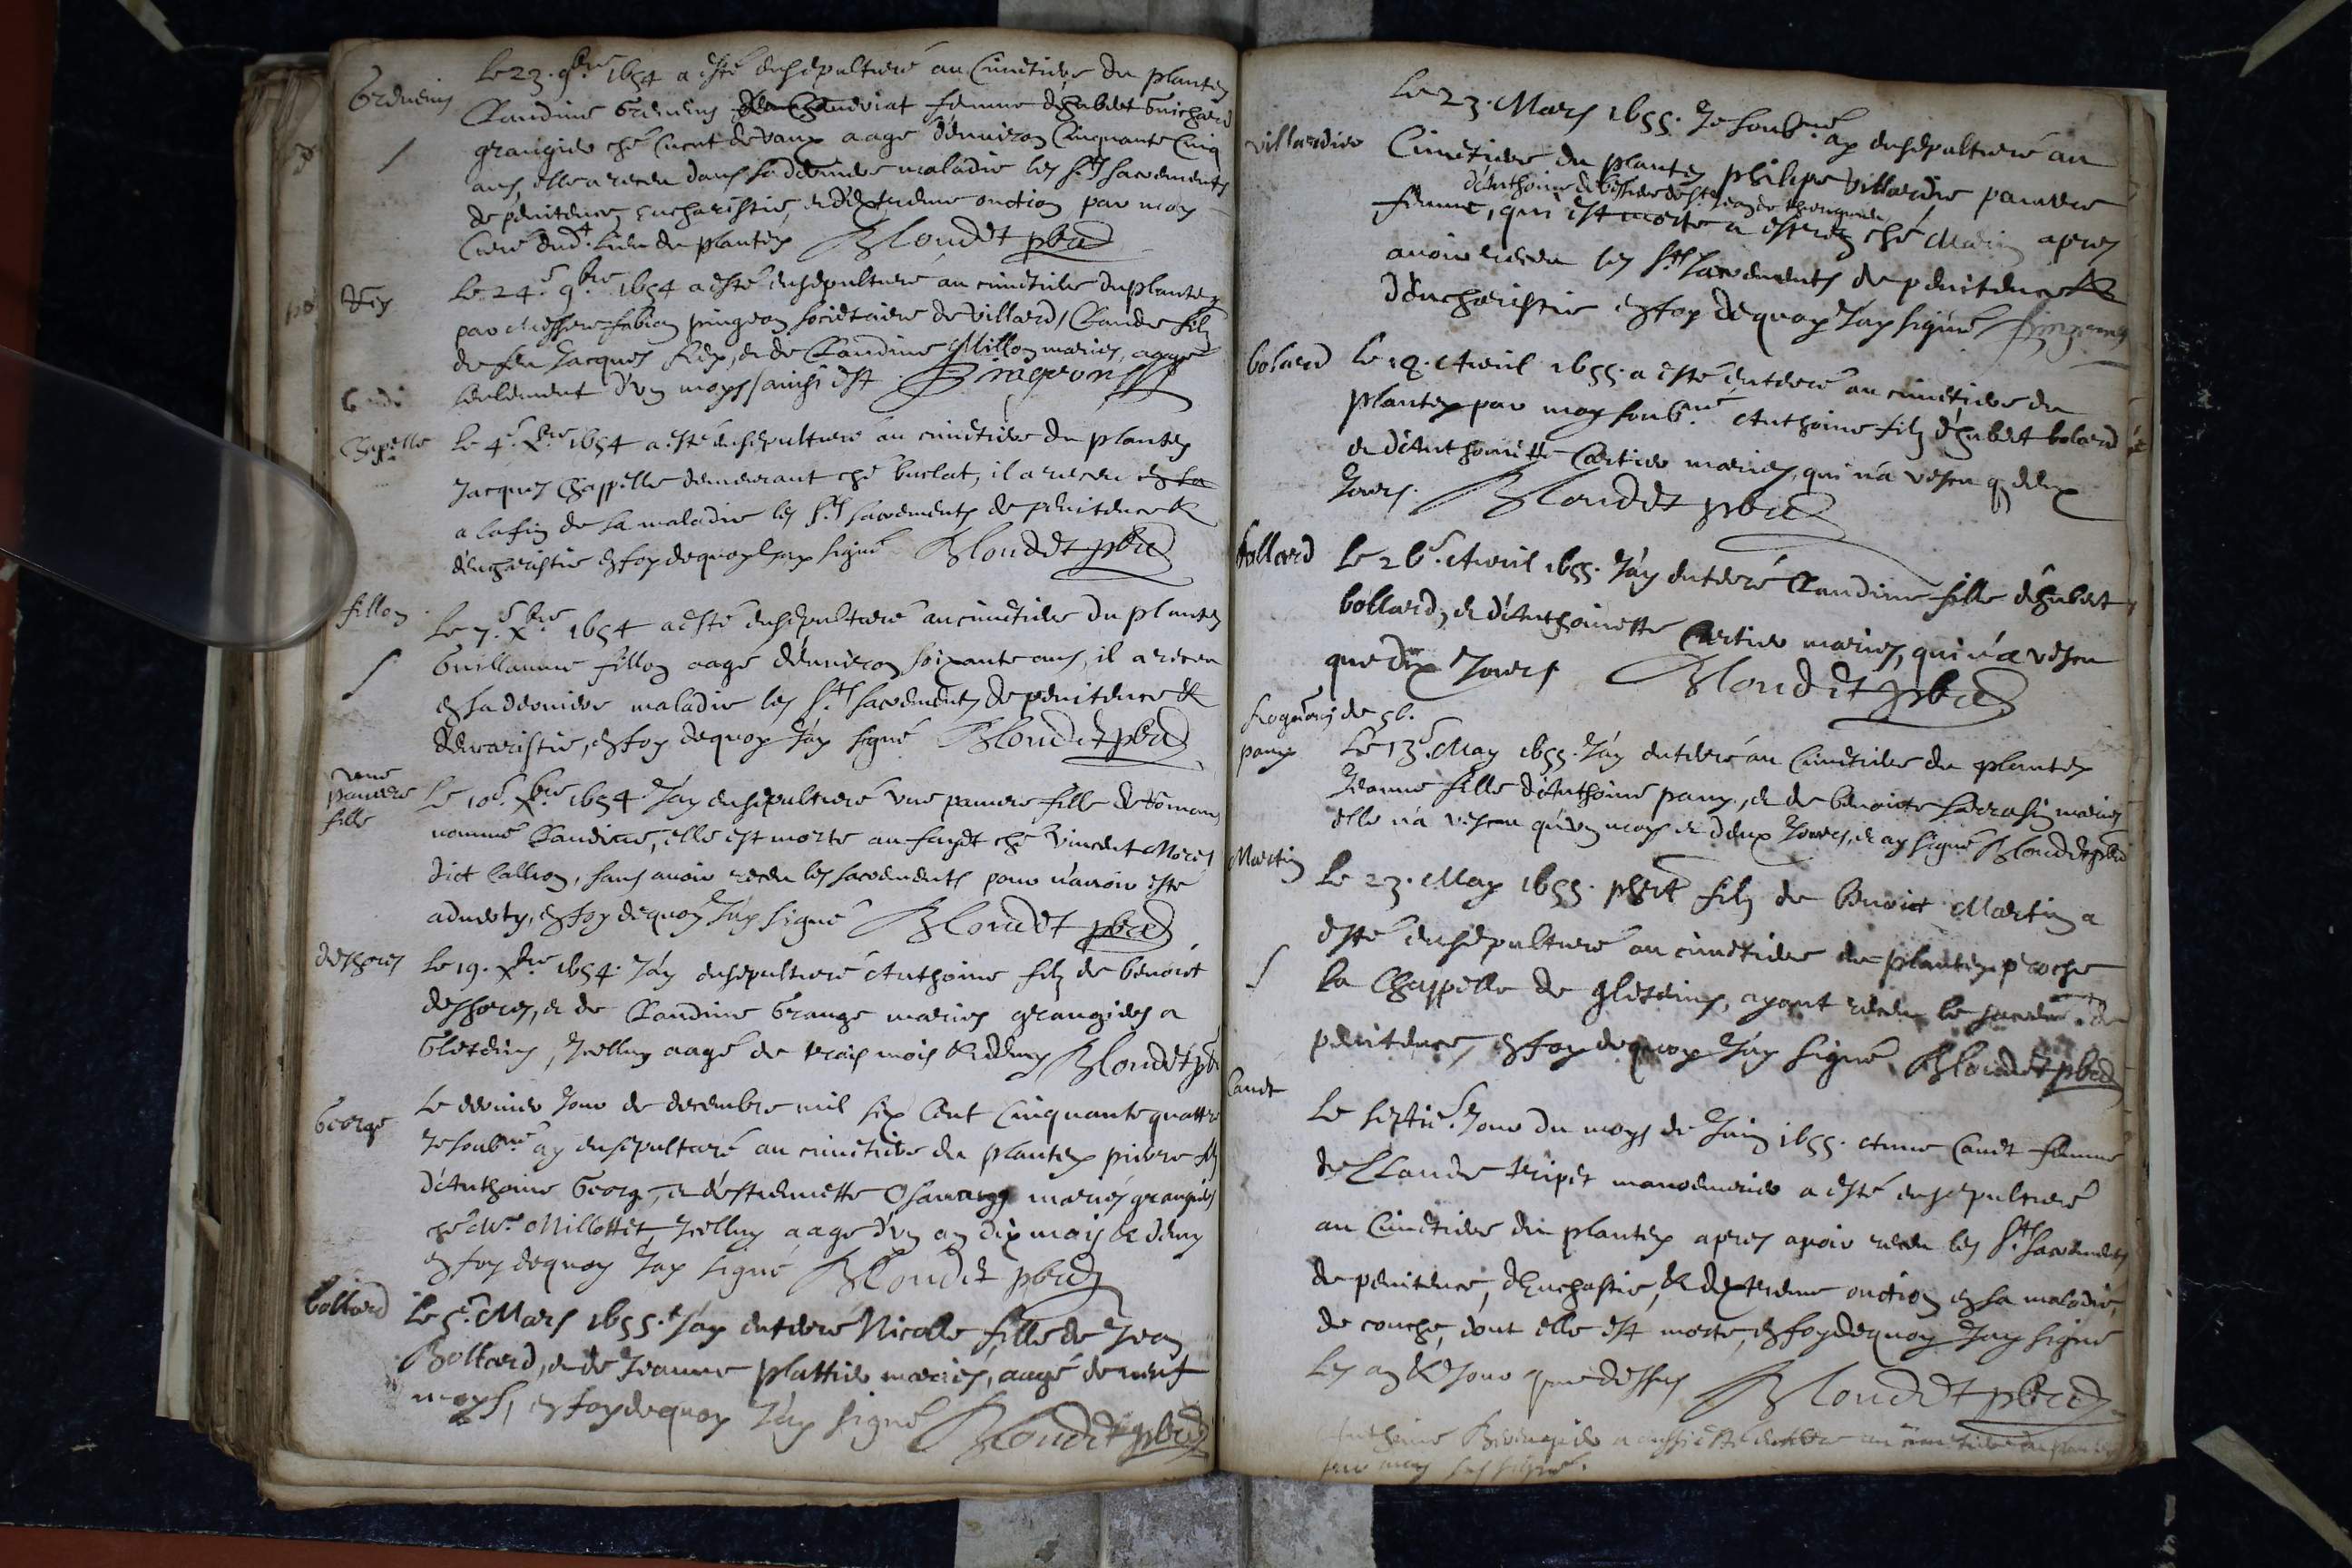 Le 23. 9bre 1654 a esté ensepulturé au Cimetiere du plantey
Claudine femme d'hubert Guichard
grangier ché Cuent de vaux aagé d'enuiron Cinquante Cinq
ans, elle a receu dans sa derniere maladie les Sts sacrements
de penitence, eucharistie, et d'extreme onction par moy
Curé dud.t lieu du plantey Blondet pbre
Rey
Le 24.e 9bre 1654 a esté ensepulturé au cimetiere du plantey
par Messire fabian pingeon societaire de villard, Claude filz
de feu Jacques Rey, et de Claudine Millon mariés, aagé
seulement d'un moys, ainsi est Pingeon
Chapelle
Le 4.e Xbre 1654 a esté ensepulturé au cimetiere du plantey
Jacques Chappelle demeurant ché burlat, il a receu en sa
a la fin de sa maladie les Sts sacrements de penitence &
d'eucharistie en foy dequoy j'ay signé Blondet pbre
fillon
Le 7.e Xbre 1654 a esté ensepulturé au cimetiere du plantey
Guillaume fillon aagé d'enuiron soixante ans, il a receu
en sa derniere maladie les Sts sacrements de penitence &
d'eucaristie, en foy dequoy j'ay signé Blondet pbre
vne
pauure
fille
Le 10e. Xbre 1654 J'ay ensepulturé vne pauure fille de romans
nommé Claudine, elle est morte au fayet ché Vincent Morel
dict Callion, sans auoir receu les sacrements pour n'auoir esté
aduerty, en foy dequoy J'ay signé Blondet pbre
deshores
Le 19. Xbre 1654. J'ay ensepulturé Anthoine filz de benoict
deshores, et de Claudine Grange mariés grangiers a
Gleteins, Jcelluy aagé de trois mois & demy Blondet pbre
George
Le dernier Jour de decembre mil six Cent Cinquante quattre
Je soubné ay ensepulturé au cimetiere du plantey pierre filz
d'Anthoine George, et d'estiennette mariés grangiers
ché Mr. Millottet, Jcelluy aagé d'vn an dix mois & demy
en foy dequoy J'ay signé Blondet pbre
bollard
Le 5.e Mars 1655. J'ay enterré Nicolle, fille de Jean
Bollard, et de Jeanne plattier mariés, aagé de neuf
moys, en foy dequoy J'ay signé Blondet pbre
villardier
Le 23. Mars 1655. Je soubné. ay ensepulturé au
Cimetiere du plantey philipe Villardier pauure
femme, qui est morte a ché Marin apres
auoir receu les Sts sacrements de penitence &
d'eucharistie en foy dequoy J'ay signé
bolard
Le 18. Auril 1655. a esté enterré au cimetiere du
plantey par moy soubné. Anthoine filz d'hubert bolard
et d'Anthoinette Cartier mariés, qui n'a vescu q deux
Jours. Blondet pbre
bollard
Le 26e. Auril 1655. J'ay enterré Claudine fille d'hubert
bollard, et d'Anthoinette Cartier mariés, qui n'a vescu
que dix Jours Blondet pbre
paux
Le 13e. May 1655. J'ay enterré au Cimetiere du plantey
Jeanne fille d'Anthoine paux, et de benoicte sarrasin mariés
elle n'a vescu qu'vn moys et deux Jours, et ay signé Blondet pbre
Martin
Le 23. May 1655. phert filz de Benoict Martin a
esté ensepulturé au cimetiere du plantey proche
la Chappelle de gleteins, ayant receu le sacrem.t de
penitence, en foy dequoy J'ay signé. Blondet pbre
Canet
Le septie. Jour du moys de Juin 1655. Anne Canet femme
de Claude tripet manoeuurier a esté ensepulturé
au Cimetiere du plantey apres auoir receu les Sts sacrements
de penitence, d'Euchastie, & d'extreme onction en sa maladie,
de couche, dont elle est morte, en foy dequoy J'ay signé
les an & Jour que dessus Blondet pbre
Anthoine a aussi esté enterré au cimetiere du plantey
par moy